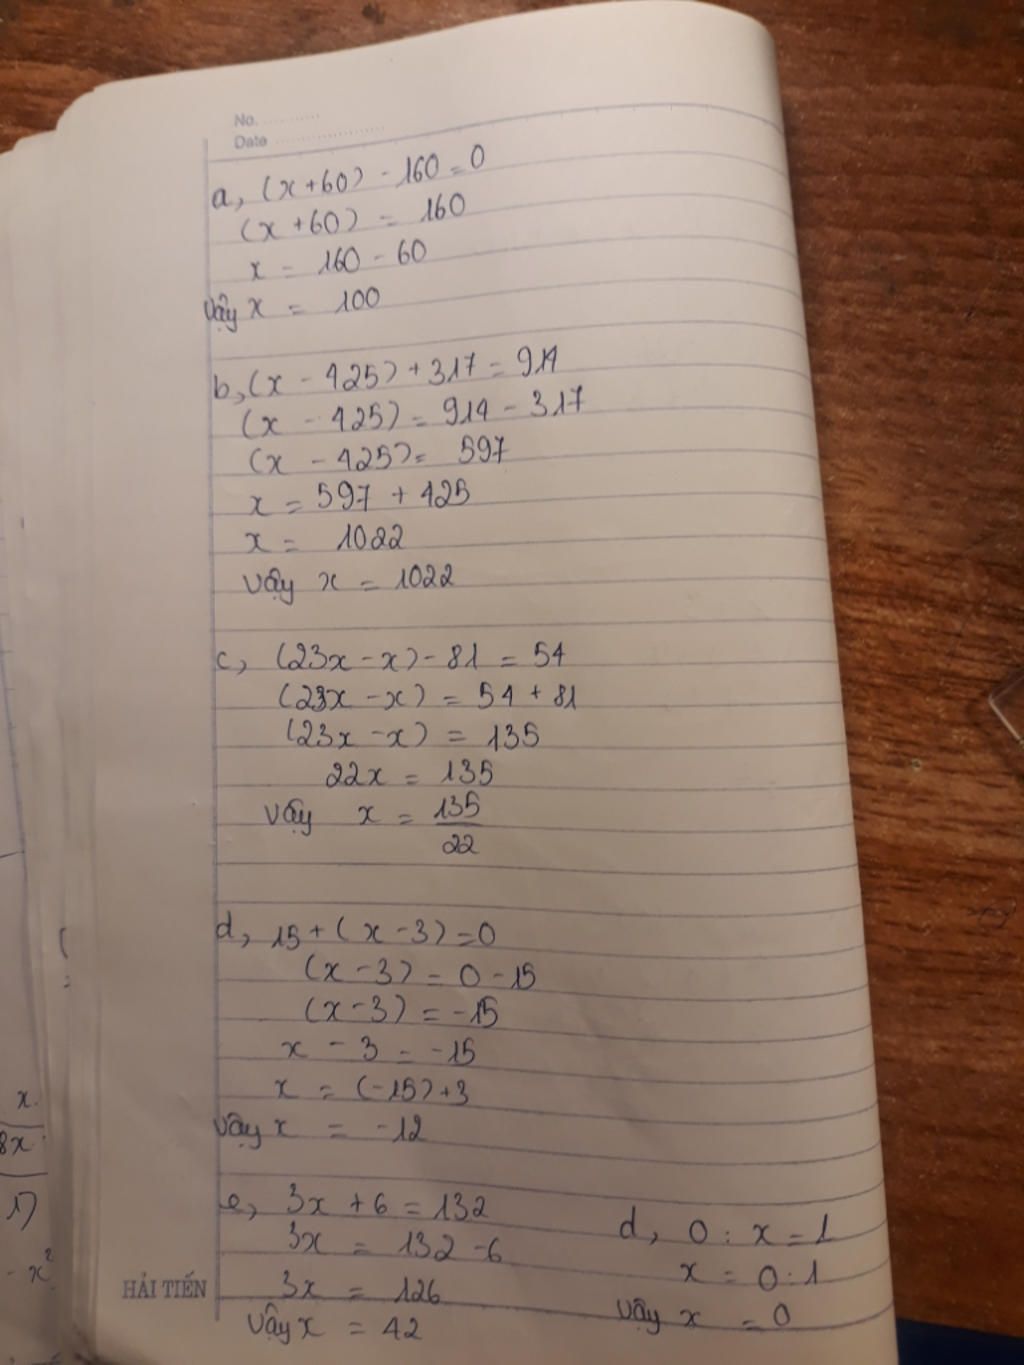 No. ............
Date ........................
a, (x+60) - 160 = 0
(x +60) = 160
x = 160 - 60
Vậy x = 100
b, (x - 425) + 317 = 914
(x - 425) = 914 - 317
(x - 425) = 597
x = 597 + 425
x = 1022
Vậy x = 1022
c, (23x - x) - 81 = 54
(23x - x) = 54 + 81
(23x - x) = 135
22x = 135
Vậy x = 135/22
d, 15 + (x - 3) = 0
(x - 3) = 0 - 15
(x - 3) = -15
x - 3 = -15
x = (-15) + 3
Vậy x = -12
e, 3x + 6 = 132
3x = 132 - 6
3x = 126
Vậy x = 42
d, 0 : x = 1
x = 0 : 1
Vậy x = 0
HẢI TIẾN
x
8x
1)
- x²